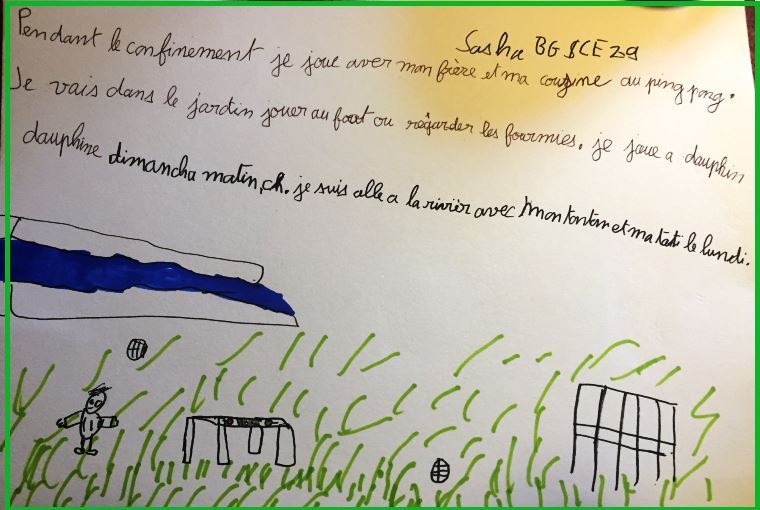 Sasha BG SCE 29
Pendant le confinement je joue aver mon frère et ma cousine au ping pong.
Je vais dans le jardin jouer au foot ou regarder les fourmies. je joue a dauphin
dauphine dimancha matin, ch. je suis alle a la rivièr avec mon tonton et ma tati le lundi.